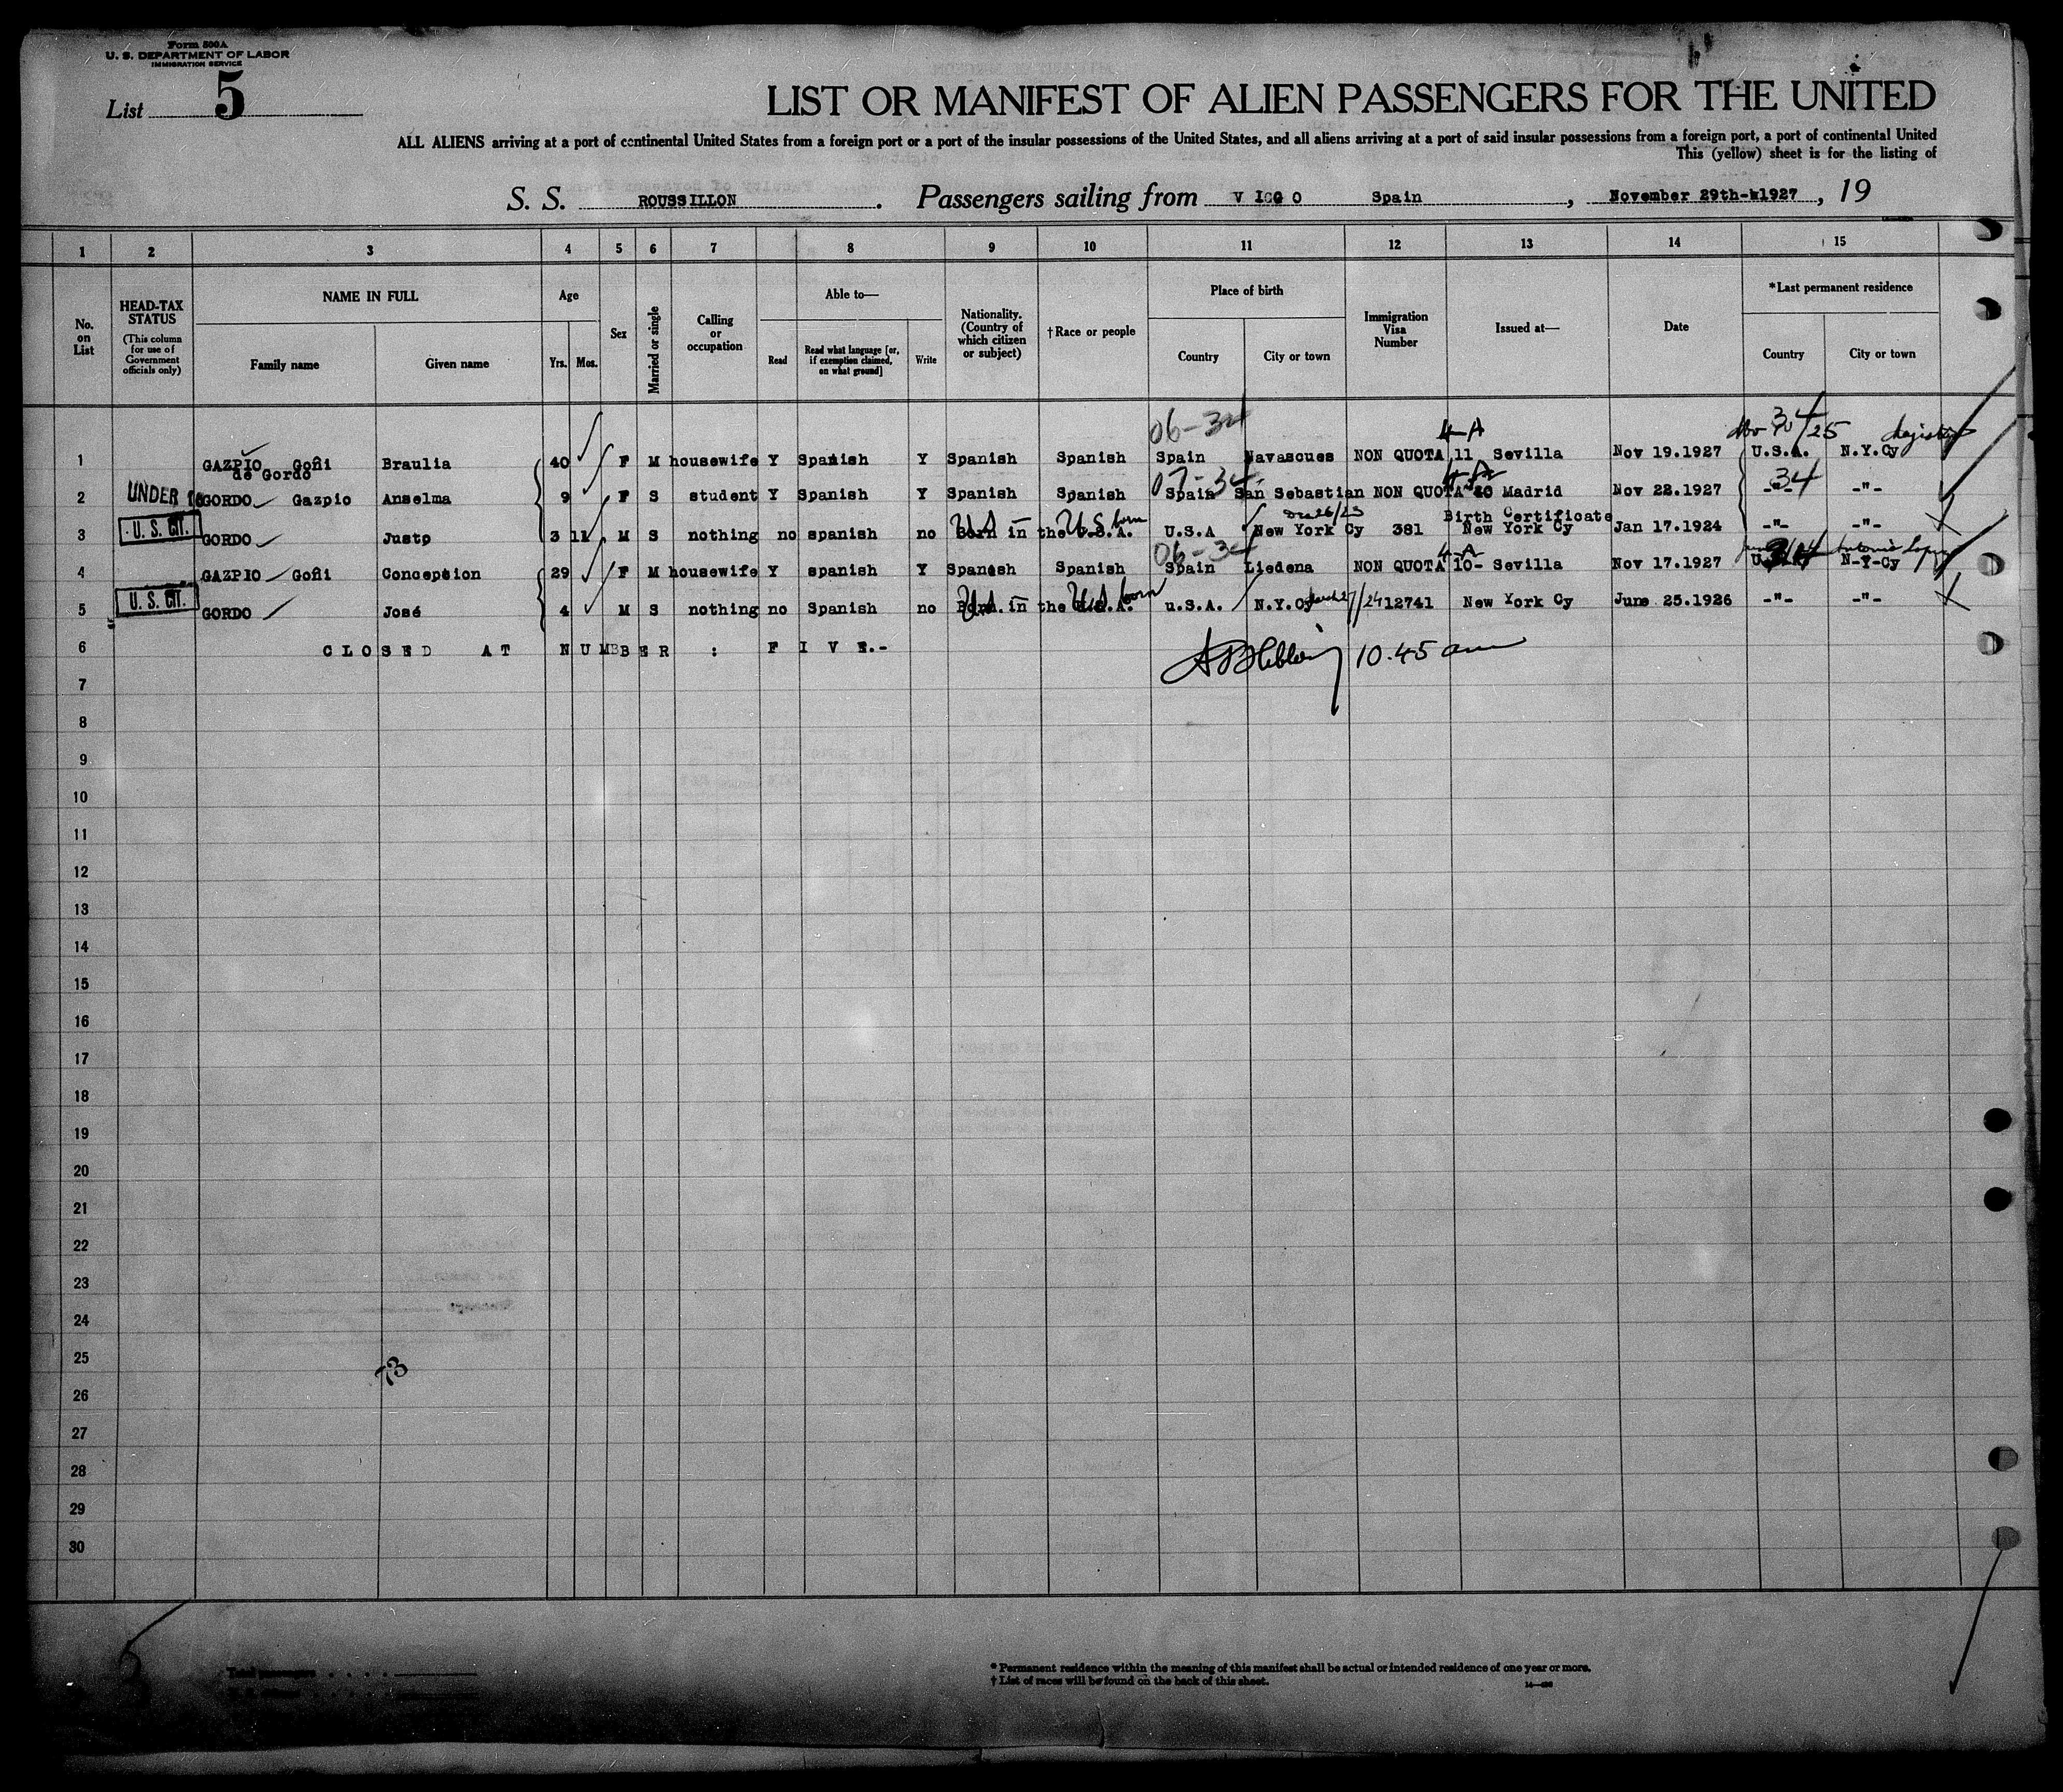 Form 500A
U. S. DEPARTMENT OF LABOR
IMMIGRATION SERVICE
List 5
LIST OR MANIFEST OF ALIEN PASSENGERS FOR THE UNITED
ALL ALIENS arriving at a port of continental United States from a foreign port or a port of the insular possessions of the United States, and all aliens arriving at a port of said insular possessions from a foreign port, a port of continental United
This (yellow) sheet is for the listing of
S. S. ROUSSILLON. Passengers sailing from V IGO O Spain, November 29th-1927, 19
1 2 3 4 5 6 7 8 9 10 11 12 13 14 15
No. on List
HEAD-TAX STATUS
(This column for use of Government officials only)
NAME IN FULL
Family name
Given name
Age
Yrs. Mos.
Sex
Married or single
Calling or occupation
Able to—
Read
Read what language [or, if exemption claimed, on what ground]
Write
Nationality. (Country of which citizen or subject)
†Race or people
Place of birth
Country
City or town
Immigration Visa Number
Issued at—
Date
*Last permanent residence
Country
City or town
06-34 4-A 34
1 GAZPIO Goñi Braulia 40 F M housewife Y Spanish Y Spanish Spanish Spain Navascues NON QUOTA 11 Sevilla Nov 19.1927 U.S.A. N.Y.Cy
de Gordo
07-34 4-A 34
UNDER 16
2 GORDO Gazpio Anselma 9 F S student Y Spanish Y Spanish Spanish Spain San Sebastian NON QUOTA Madrid Nov 22.1927 -"- -"-
U. S. CIT. US born Dec 26/23 Birth Certificate
3 GORDO Justo 3 11 M S nothing no spanish no Born in the U.S.A. U.S.A New York Cy 381 New York Cy Jan 17.1924 -"- -"-
06-34 4-A
4 GAZPIO Goñi Conception 29 F M housewife Y spanish Y Spanesh Spanish Spain Liedena NON QUOTA 10- Sevilla Nov 17.1927 N-Y-Cy
U. S. CIT. US born
5 GORDO José 4 M S nothing no Spanish no Born in the U.S.A. u.S.A. N.Y.Cy 12741 New York Cy June 25.1926 -"- -"-
6 CLOSED AT NUMBER : FIVE.-
10.45 am
7
8
9
10
11
12
13
14
15
16
17
18
19
20
21
22
23
24
25
73
26
27
28
29
30
5
Total passengers
* Permanent residence within the meaning of this manifest shall be actual or intended residence of one year or more.
† List of races will be found on the back of this sheet.